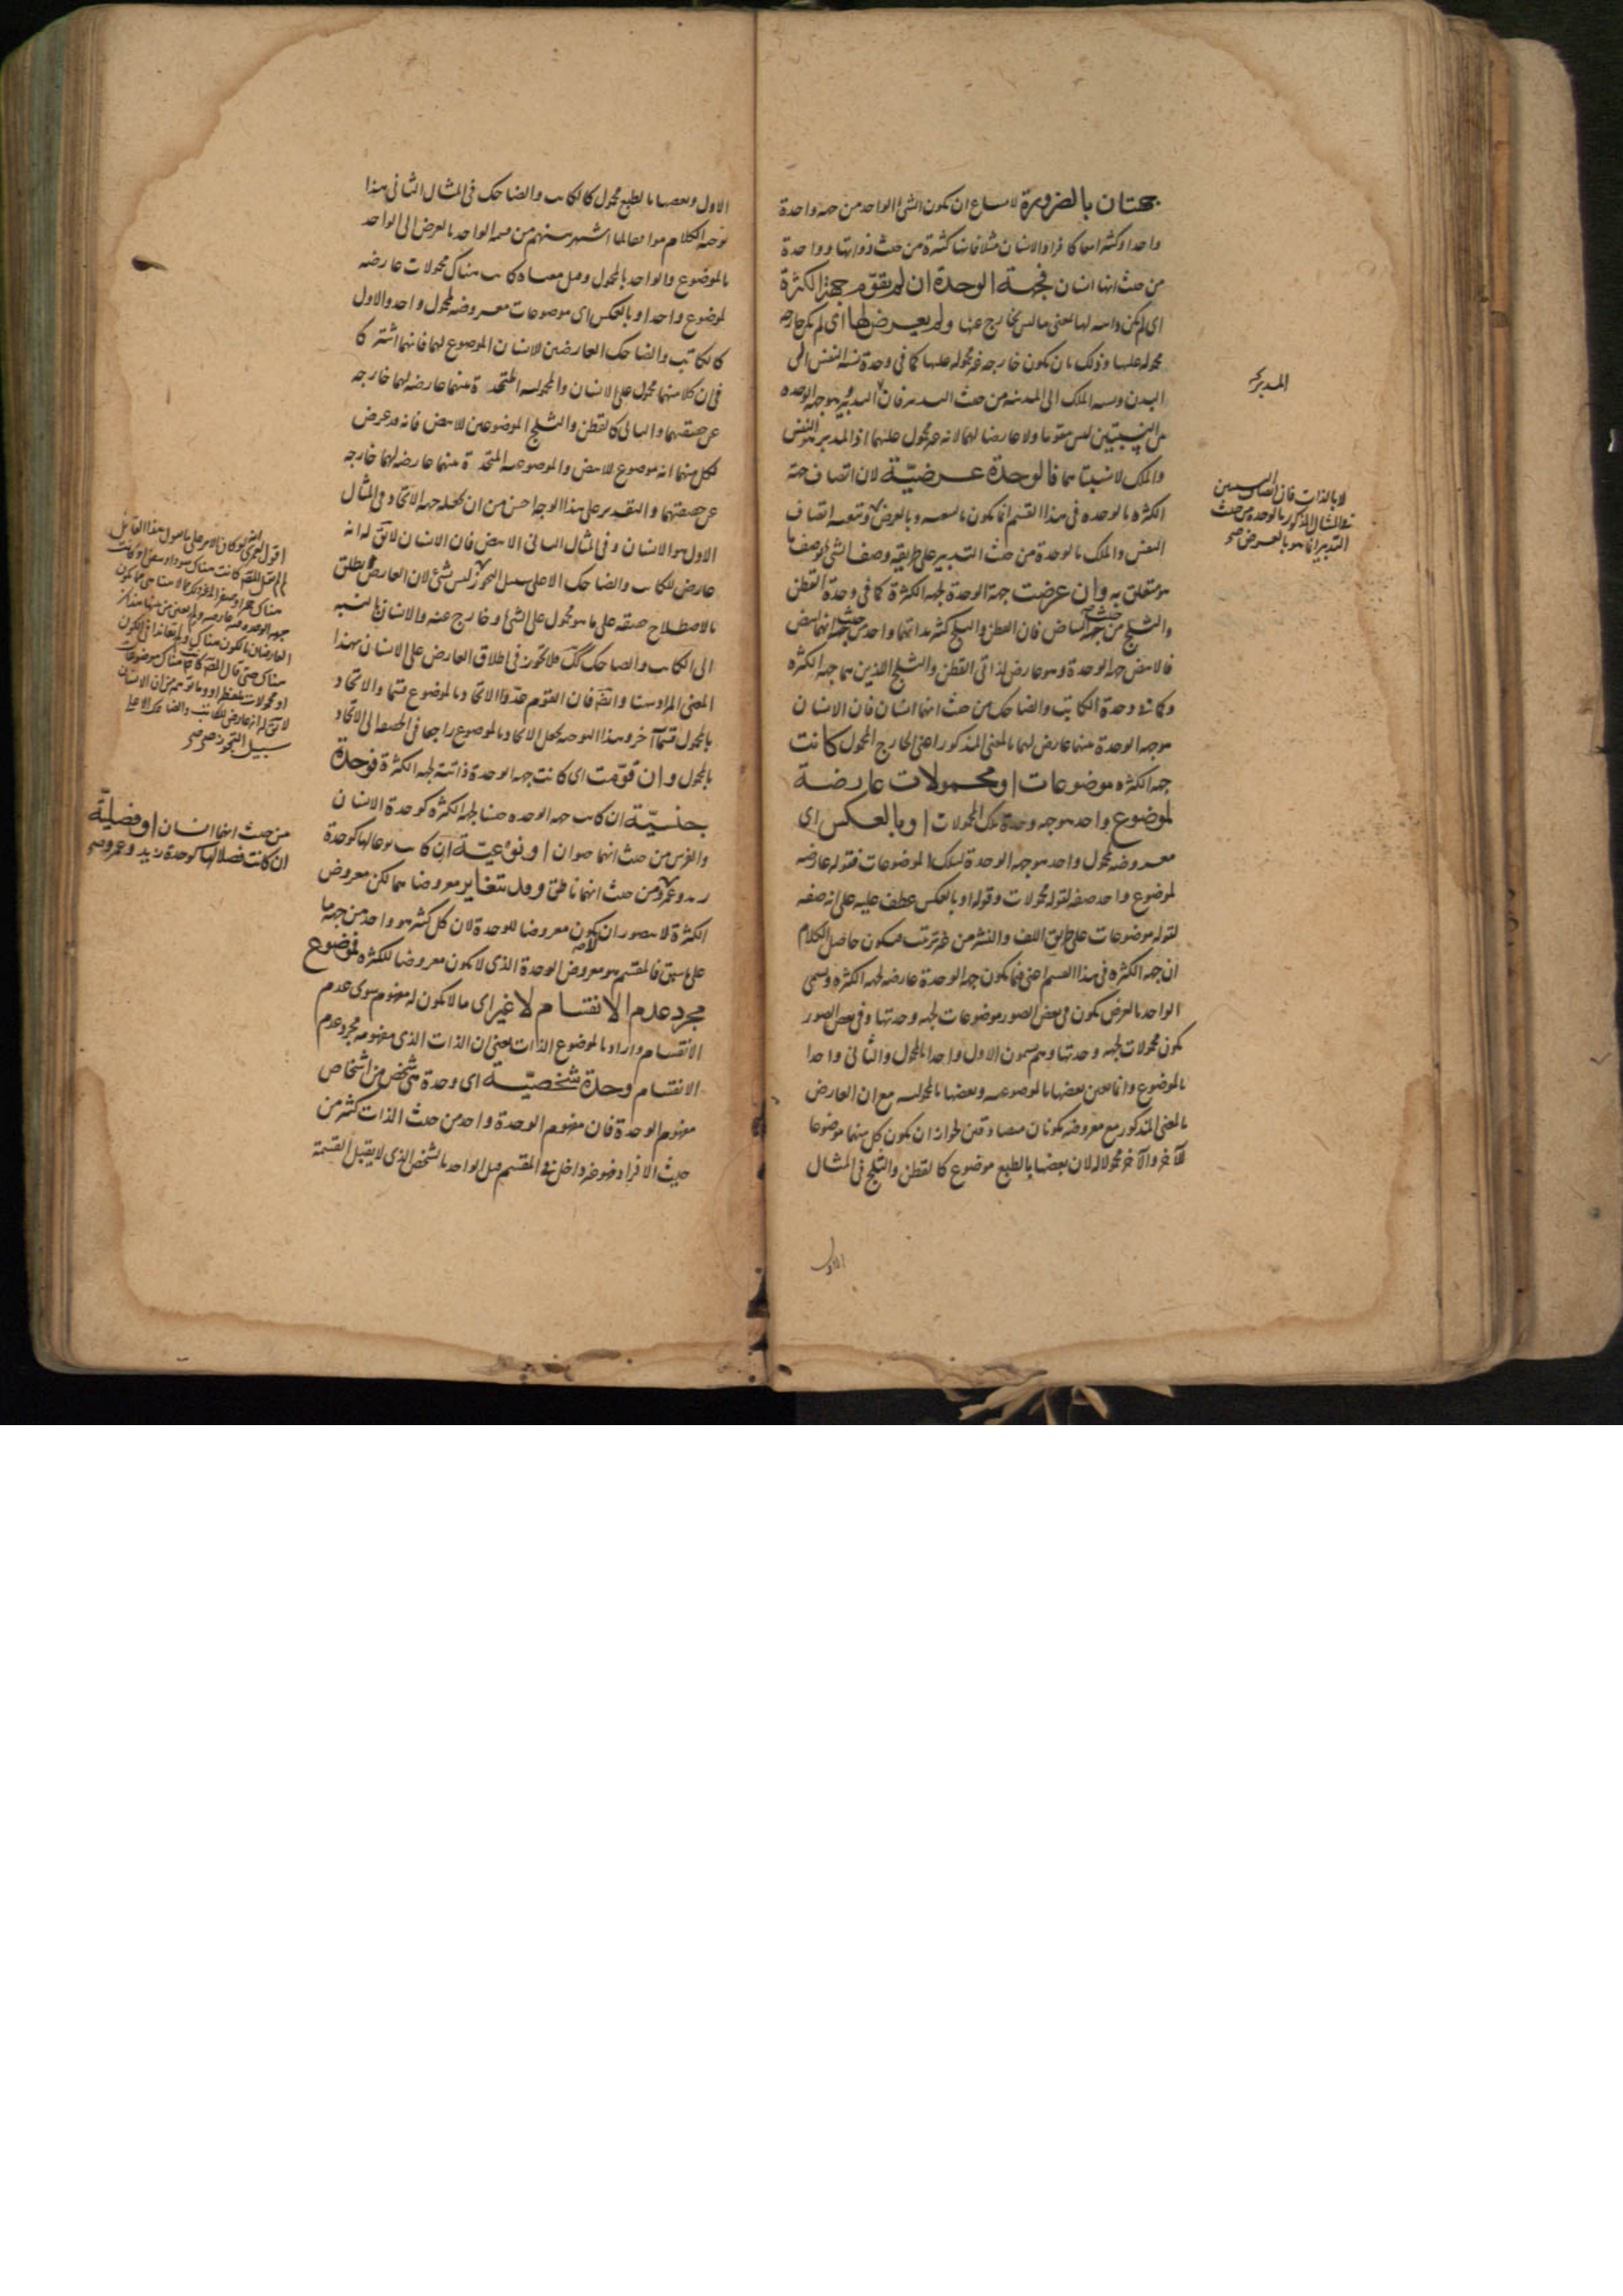 جهتان بالضرورة لامتناع ان يكون الشئ الواحد من جهة واحدة
واحدا وكثيرا كافراد الانسان مثلا فانها كثيرة من حيث ذواتها وواحدة
من حيث انها انسان فجهة الوحدة ان لم تقوّم جهة الكثرة
اى لم يكن ذاتية لها بمعنى ما ليس بخارج عنها ولم يعرض لها اى لم يكن خارجة
محمولة عليها وذلك بان يكون خارجة غير محمولة عليها كما فى وحدة نسبة النفس الى
البدن ونسبة الملك الى المدينة من حيث التدبير فان التدبير هو جهة الوحدة
من النسبتين ليس مقوما ولا عارضا لهما لانه غير محمول عليهما اذ المدبر هو النفس
والملك لا نسبتاهما فالوحدة عرضيّة لان اتصاف جهة
الكثرة بالوحدة فى هذا القسم انما يكون بالتبعية وبالعرض وتبعية اتصاف
النفس والملك بالوحدة من حيث التدبير على طريقة وصف الشئ بوصف ما
هو متعلق به وان عرضت جهة الوحدة لجهة الكثرة كما فى وحدة القطن
والثلج من حيث البياض فان القطن والثلج كثير بذاتهما واحد من حيث انهما ابيض
فالابيض جهة الوحدة وهو عارض لذاتى القطن والثلج الذين هما جهة الكثرة
وكما فى وحدة الكاتب والضاحك من حيث انهما انسان فان الانسان
هو جهة الوحدة بينهما عارض لهما بالمعنى المذكور اعنى الخارج المحمول كانت
جهة الكثرة موضوعات او محمولات عارضة
لموضوع واحد هو جهة وحدة تلك المحمولات او بالعكس اى
معروضة لمحمول واحد هو جهة الوحدة لتلك الموضوعات فقوله عارضة
لموضوع واحد صفة لقوله محمولات وقوله او بالعكس عطف عليه على انه صفة
لقوله موضوعات على طريق اللف والنشر من غير ترتيب فيكون حاصل الكلام
ان جهة الكثرة فى هذا القسم اعنى فيما يكون جهة الوحدة عارضة لجهة الكثرة ويسمى
الواحد بالعرض يكون فى بعض الصور موضوعات لجهة وحدتها وفى بعض الصور
يكون محمولات لجهة وحدتها وهم يسمون الاول واحدا بالمحمول والثانى واحدا
بالموضوع وانما تعين بعضها بالموضوعية وبعضها بالمحمولية مع ان العارض
بالمعنى المذكور مع معروضه يكونان متصادقين لجواز ان يكون كل منهما موضوعا
للآخر والآخر محمولا له لان بعضها بالطبع موضوع كالقطن والثلج فى المثال
الاول
المدبر
لا بالذات فان اتصاف النسبتين
فى المثال المذكور بالوحدة من حيث
التدبير انما هو بالعرض صح
الاول وبعضها بالطبع محمول كالكاتب والضاحك فى المثال الثانى هذا
توجيه الكلام موافقا لما اشتهر بينهم من قسمة الواحد بالعرض الى الواحد
بالموضوع والواحد بالمحمول وقيل معناه كانت هناك محمولات عارضة
لموضوع واحد او بالعكس اى موضوعات معروضة لمحمول واحد والاول
كالكاتب والضاحك العارضين للانسان الموضوع لهما فانهما اشتركا
فى ان كلا منهما محمول على الانسان والمحمولية المتحدة بينهما عارضة لهما خارجة
عن حقيقتهما والثانى كالقطن والثلج الموضوعين للابيض فانه قد عرض
لكل منهما انه موضوع للابيض والموضوعية المتحدة بينهما عارضة لهما خارجة
عن حقيقتهما والتقدير على هذا الوجه احسن من ان يجعل جهة الاتحاد فى المثال
الاول هو الانسان وفى المثال الثانى الابيض فان الانسان لا يقال له انه
عارض للكاتب والضاحك الا على سبيل التجوز ليس بشئ لان العارض يطلق
بالاصطلاح حقيقة على ما هو محمول على الشئ وخارج عنه والانسان بالنسبة
الى الكاتب والضاحك كذلك فلا تجوز فى اطلاق العارض على الانسان بهذا
المعنى المراد هنا وايضا فان القوم عدّوا الاتحاد بالموضوع قسما والاتحاد
بالمحمول قسما آخر وهذا التوجيه يجعل الاتحاد بالموضوع راجعا فى الحقيقة الى الاتحاد
بالمحمول وان قوّمت اى كانت جهة الوحدة ذاتية لجهة الكثرة فوحدة
جنسيّة ان كانت جهة الوحدة جنسا لجهة الكثرة كوحدة الانسان
والفرس من حيث انهما حيوان او نوعيّة ان كانت نوعا لها كوحدة
زيد وعمرو من حيث انهما ناطق وقد يتغاير معروضاهما لكن معروض
الكثرة لا يتصور ان يكون معروضا للوحدة لان كل كثير هو واحد من جهة ما
على ما سبق فالمقسم هو معروض الوحدة الذى لا يكون معروضا للكثرة فموضوع
مجرد عدم الانقسام لا غير اى ما لا يكون له مفهوم سوى عدم
الانقسام واراد بالموضوع الذات يعنى ان الذات الذى مفهومه مجرد عدم
الانقسام وحدة شخصيّة اى وحدة هى شخص من اشخاص
مفهوم الوحدة فان مفهوم الوحدة واحد من حيث الذات كثير من
حيث الافراد فهو غير داخل فى المقسم قيل الواحد بالشخص الذى لا يقبل القسمة
سبيل التجوز صح
من حيث انها انسان او فصليّة
ان كانت فصلا لها كوحدة زيد وعمرو صح